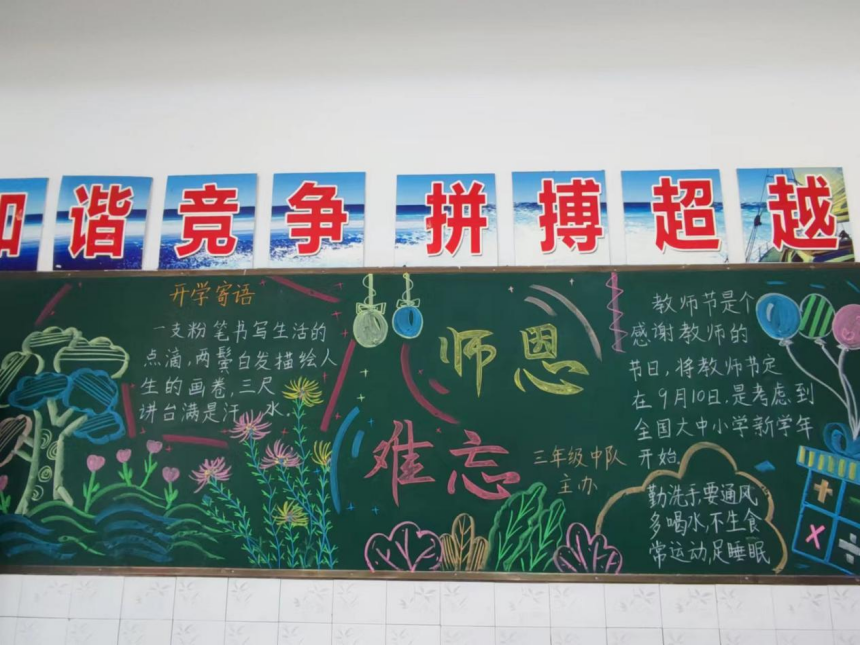 和谐竞争 拼搏超越
开学寄语
一支粉笔书写生活的
点滴,两鬓白发描绘人
生的画卷,三尺
讲台满是汗水.
师恩
难忘
三年级中队
主办
教师节是个
感谢教师的
节日,将教师节定
在9月10日.是考虑到
全国大中小学新学年
开始.
勤洗手,要通风
多喝水,不生食
常运动,足睡眠